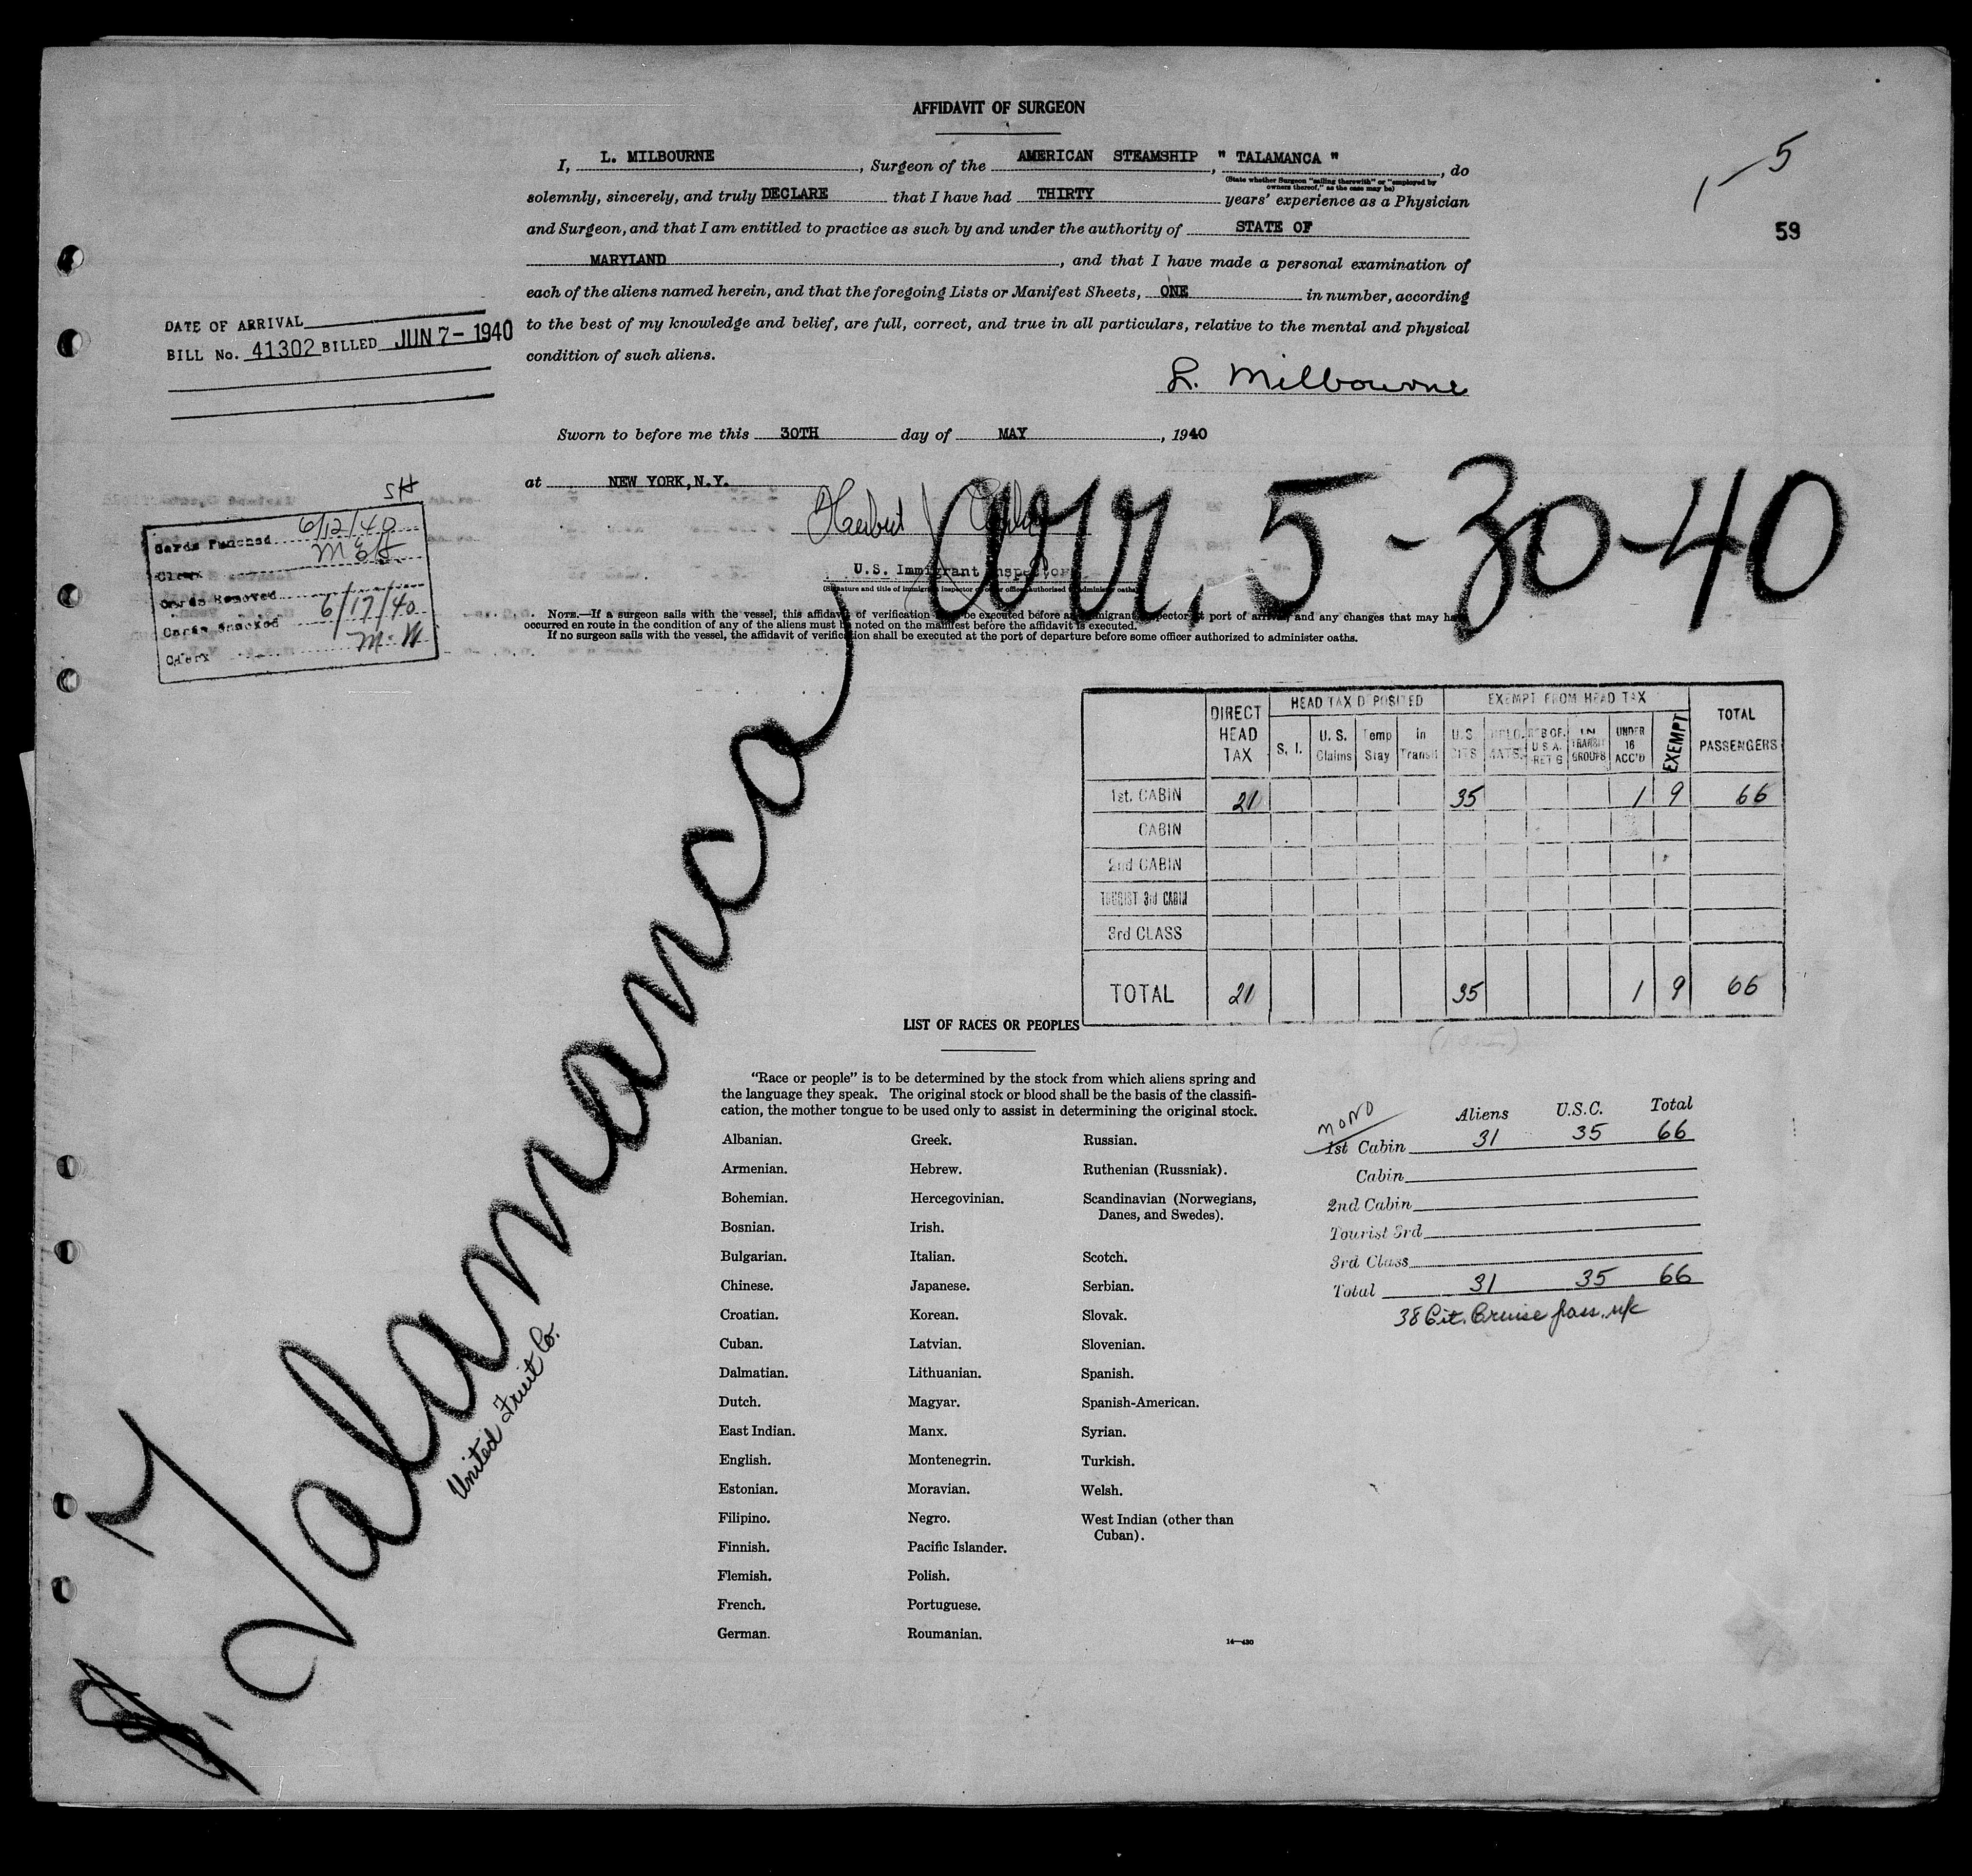 AFFIDAVIT OF SURGEON
I, L. MILBOURNE, Surgeon of the AMERICAN STEAMSHIP, " TALAMANCA ", do
(State whether Surgeon "sailing therewith" or "employed by owners thereof," as the case may be)
solemnly, sincerely, and truly DECLARE that I have had THIRTY years' experience as a Physician
and Surgeon, and that I am entitled to practice as such by and under the authority of STATE OF
MARYLAND, and that I have made a personal examination of
each of the aliens named herein, and that the foregoing Lists or Manifest Sheets, ONE in number, according
to the best of my knowledge and belief, are full, correct, and true in all particulars, relative to the mental and physical
condition of such aliens.
L. Milbourne
1-5
59
DATE OF ARRIVAL
BILL No. 41302 BILLED JUN 7- 1940
Sworn to before me this 30TH day of MAY, 1940
at NEW YORK, N.Y.
Herbert
U.S. Immigrant Inspector
(Signature and title of immigrant inspector or other officer authorized to administer oaths)
arr. 5-30-40
SH
Cards Punched 6/12/40
Clerk
Cards Removed
Cards Checked 6/17/40
Clerk M. W
NOTE.—If a surgeon sails with the vessel, this affidavit of verification shall be executed before an immigrant inspector at port of arrival, and any changes that may have
occurred en route in the condition of any of the aliens must be noted on the manifest before the affidavit is executed.
If no surgeon sails with the vessel, the affidavit of verification shall be executed at the port of departure before some officer authorized to administer oaths.
DIRECT HEAD TAX
HEAD TAX DEPOSITED
EXEMPT FROM HEAD TAX
TOTAL PASSENGERS
S. I.
U. S. Claims
Temp Stay
in Transit
U.S. CITS
DIPLOMATS.
U S A. RET'G
IN TRANSIT GROUPS
UNDER 16 ACC'D
EXEMPT
1st. CABIN 21 35 1 9 66
CABIN
2nd CABIN
TOURIST 3rd CABIN
3rd CLASS
TOTAL 21 35 1 9 66
S. Talamanca
United Fruit Co.
LIST OF RACES OR PEOPLES
"Race or people" is to be determined by the stock from which aliens spring and
the language they speak. The original stock or blood shall be the basis of the classifi-
cation, the mother tongue to be used only to assist in determining the original stock.
Albanian. Greek. Russian.
Armenian. Hebrew. Ruthenian (Russniak).
Bohemian. Hercegovinian. Scandinavian (Norwegians,
Danes, and Swedes).
Bosnian. Irish.
Bulgarian. Italian. Scotch.
Chinese. Japanese. Serbian.
Croatian. Korean. Slovak.
Cuban. Latvian. Slovenian.
Dalmatian. Lithuanian. Spanish.
Dutch. Magyar. Spanish-American.
East Indian. Manx. Syrian.
English. Montenegrin. Turkish.
Estonian. Moravian. Welsh.
Filipino. Negro. West Indian (other than
Cuban).
Finnish. Pacific Islander.
Flemish. Polish.
French. Portuguese.
German. Roumanian.
14—430
Aliens U.S.C. Total
mono
1st Cabin 31 35 66
Cabin
2nd Cabin
Tourist 3rd
3rd Class
Total 31 35 66
38 Cit. Cruise pass.